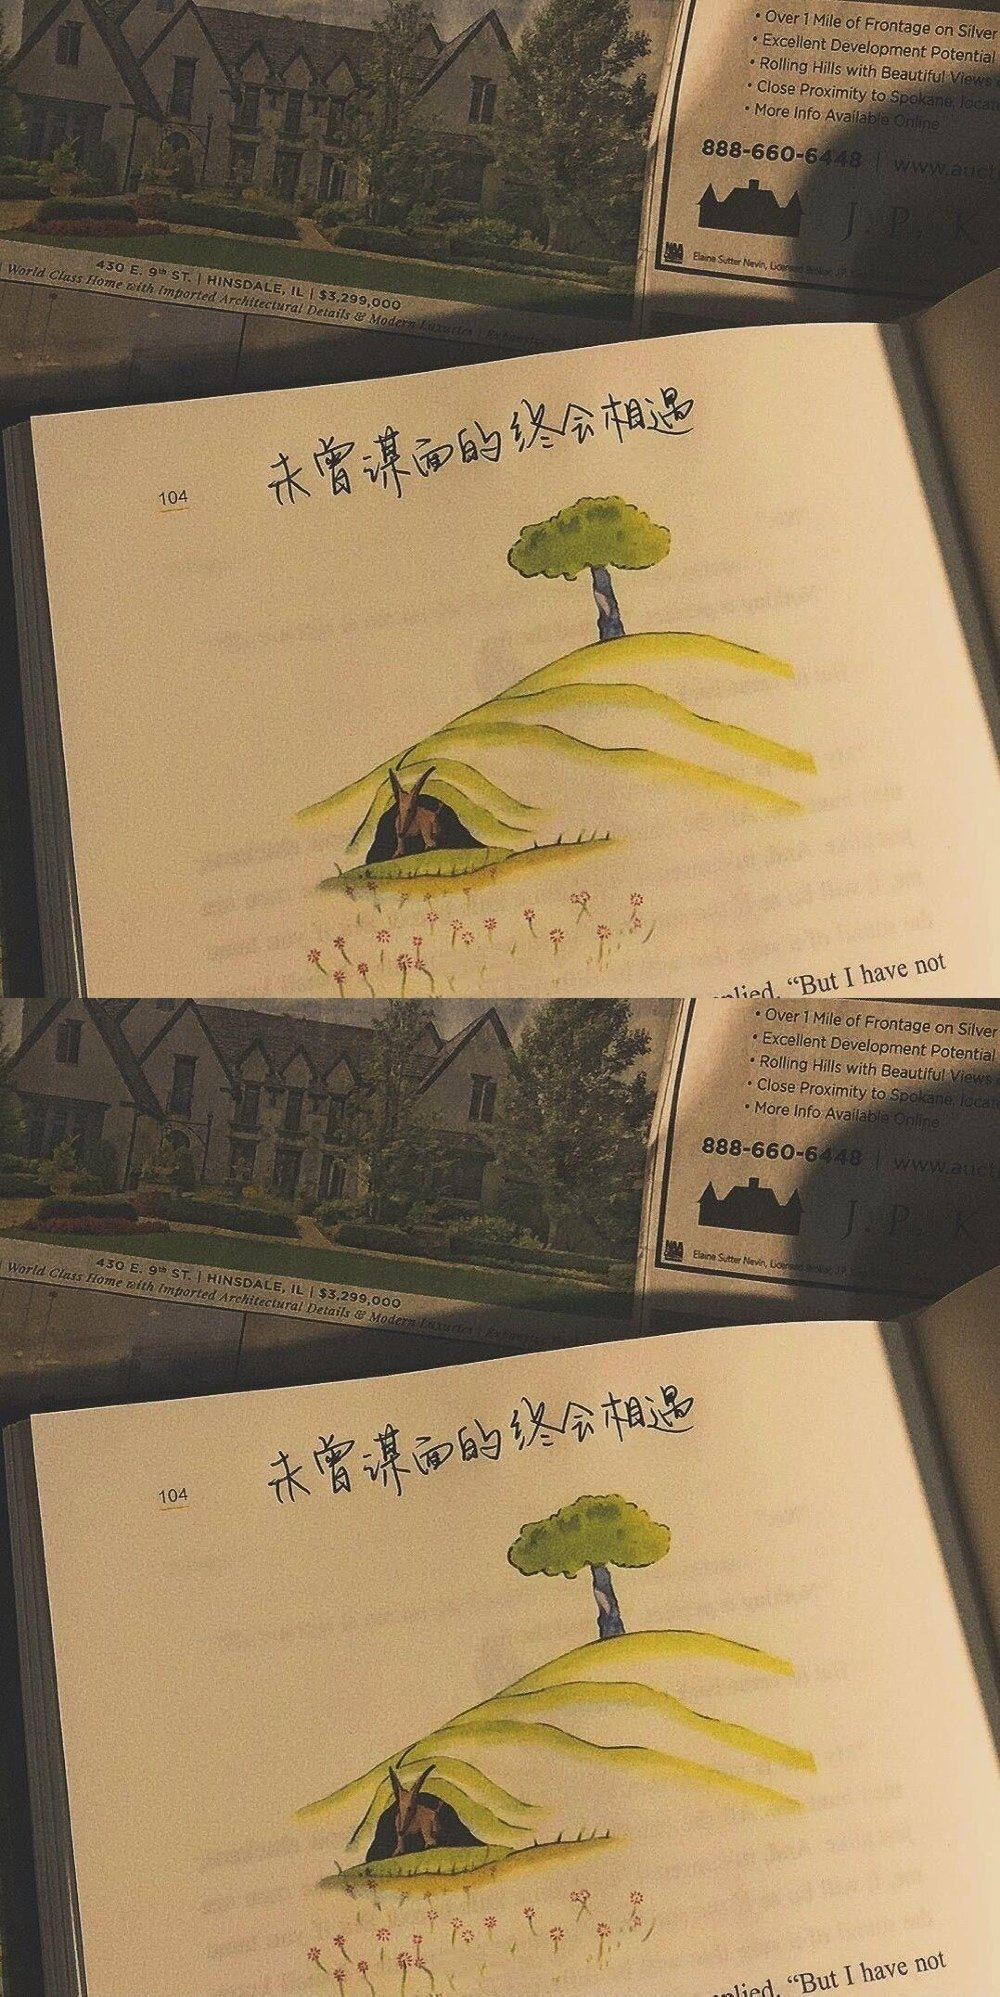 • Over 1 Mile of Frontage on Silver
• Excellent Development Potential
• Rolling Hills with Beautiful Views
• Close Proximity to Spokane, locat
• More Info Available Online
888-660-6448 | www.auct
J. P. K
Elaine Sutter Nevin, Licensed Broker, J.P.
430 E. 9th ST. | HINSDALE, IL | $3,299,000
World Class Home with Imported Architectural Details & Modern Luxuries
未曾谋面的终会相遇
104
plied. “But I have not
• Over 1 Mile of Frontage on Silver
• Excellent Development Potential
• Rolling Hills with Beautiful Views
• Close Proximity to Spokane, locat
• More Info Available Online
888-660-6448 | www.auct
J. P. K
Elaine Sutter Nevin, Licensed Broker, J.P.
430 E. 9th ST. | HINSDALE, IL | $3,299,000
World Class Home with Imported Architectural Details & Modern Luxuries
未曾谋面的终会相遇
104
plied. “But I have not